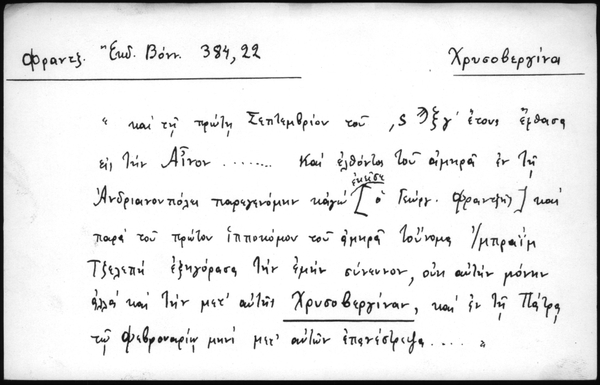 Φραντζ. Ἔκδ. Βόνν. 384,22 Χρυσοβεργίνα
" καὶ τῇ πρώτῃ Σεπτεμβρίου τοῦ ,ς϶ξγ' ἔτους ἔφθασα
εἰς τὴν Αἶνον ........ καὶ ἐλθόντος τοῦ ἀμηρᾶ ἐν τῇ
ἐκεῖσε
Ἀνδριανουπόλει παρεγενόμην κἀγὼ [ὁ Γεώργ. Φραντζῆς] καὶ
παρὰ τοῦ πρώτου ἱπποκόμου τοῦ ἀμηρᾶ τοὔνομα Ἰμπραῒμ
Τζελεπῆ ἐξηγόρασα τὴν ἐμὴν σύνευνον, οὐκ αὐτὴν μόνην
ἀλλὰ καὶ τὴν μετ' αὐτῆς Χρυσοβεργίναν, καὶ ἐν τῇ Πάτρᾳ
τῷ Φεβρουαρίῳ μηνὶ μετ' αὐτῶν ἐπανέστρεψα .... "